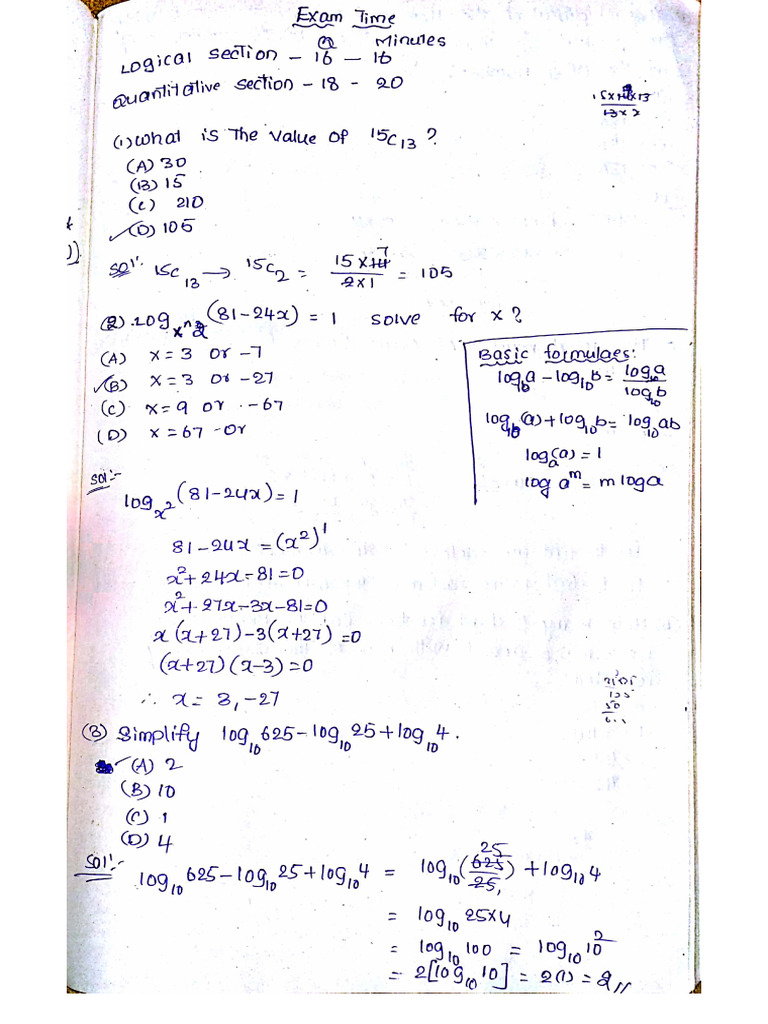 Exam Time
Q Minutes
Logical section - 16 - 16
Quantitative section - 18 - 20
(1) What is the value of 15C13 ?
(A) 30
(B) 15
(C) 210
(D) 105
Sol:- 15C13 → 15C2 = 15×14 7/2×1 = 105
(2). log x^2 (81-24x) = 1 solve for x?
(A) x = 3 or -7
(B) x = 3 or -27
(C) x = 9 or -67
(D) x = 67 or
Basic formulaes:
log10 a - log10 b = log10 a/log10 b
log10 (a) + log10 b = log10 ab
log a (a) = 1
log a^m = m log a
Sol:-
log x^2 (81-24x) = 1
81-24x = (x^2)^1
x^2+24x-81=0
x^2+27x-3x-81=0
x(x+27)-3(x+27)=0
(x+27)(x-3)=0
∴ x = 3, -27
(3) Simplify log10 625 - log10 25 + log10 4.
(A) 2
(B) 10
(C) 1
(D) 4
Sol:-
log10 625 - log10 25 + log10 4 = log10 (625 25/25) + log10 4
= log10 25×4
= log10 100 = log10 10^2
= 2[log10 10] = 2(1) = 2//